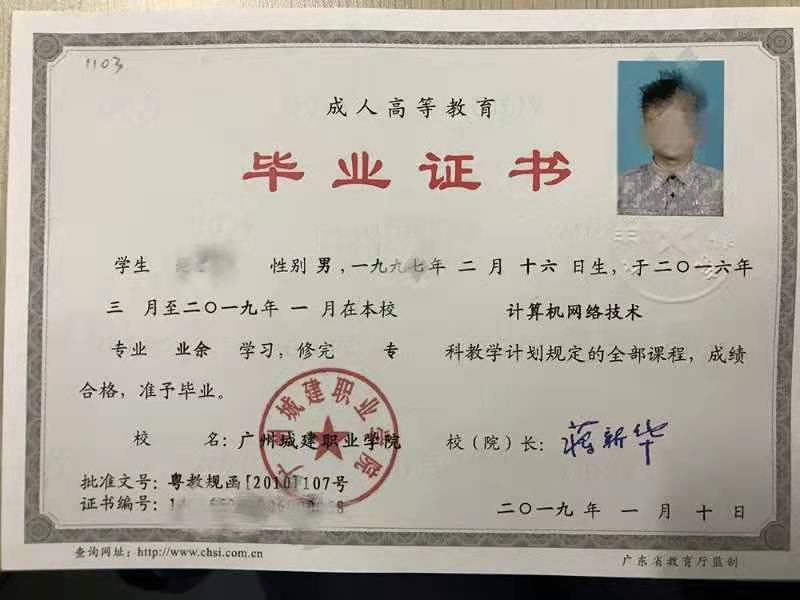 1103
成人高等教育
毕业证书
学生 性别 男,一九九七年 二 月 十六 日生,于二〇一六年
三 月至二〇一九年 一 月在本校 计算机网络技术
专业 业余 学习,修完 专 科教学计划规定的全部课程,成绩
合格,准予毕业。
校 名:广州城建职业学院 校(院)长:蒋新华
广州城建职业学院
批准文号:粤教规函[2010]107号
证书编号:
二〇一九 年 一 月 十 日
查询网址:http://www.chsi.com.cn 广东省教育厅监制